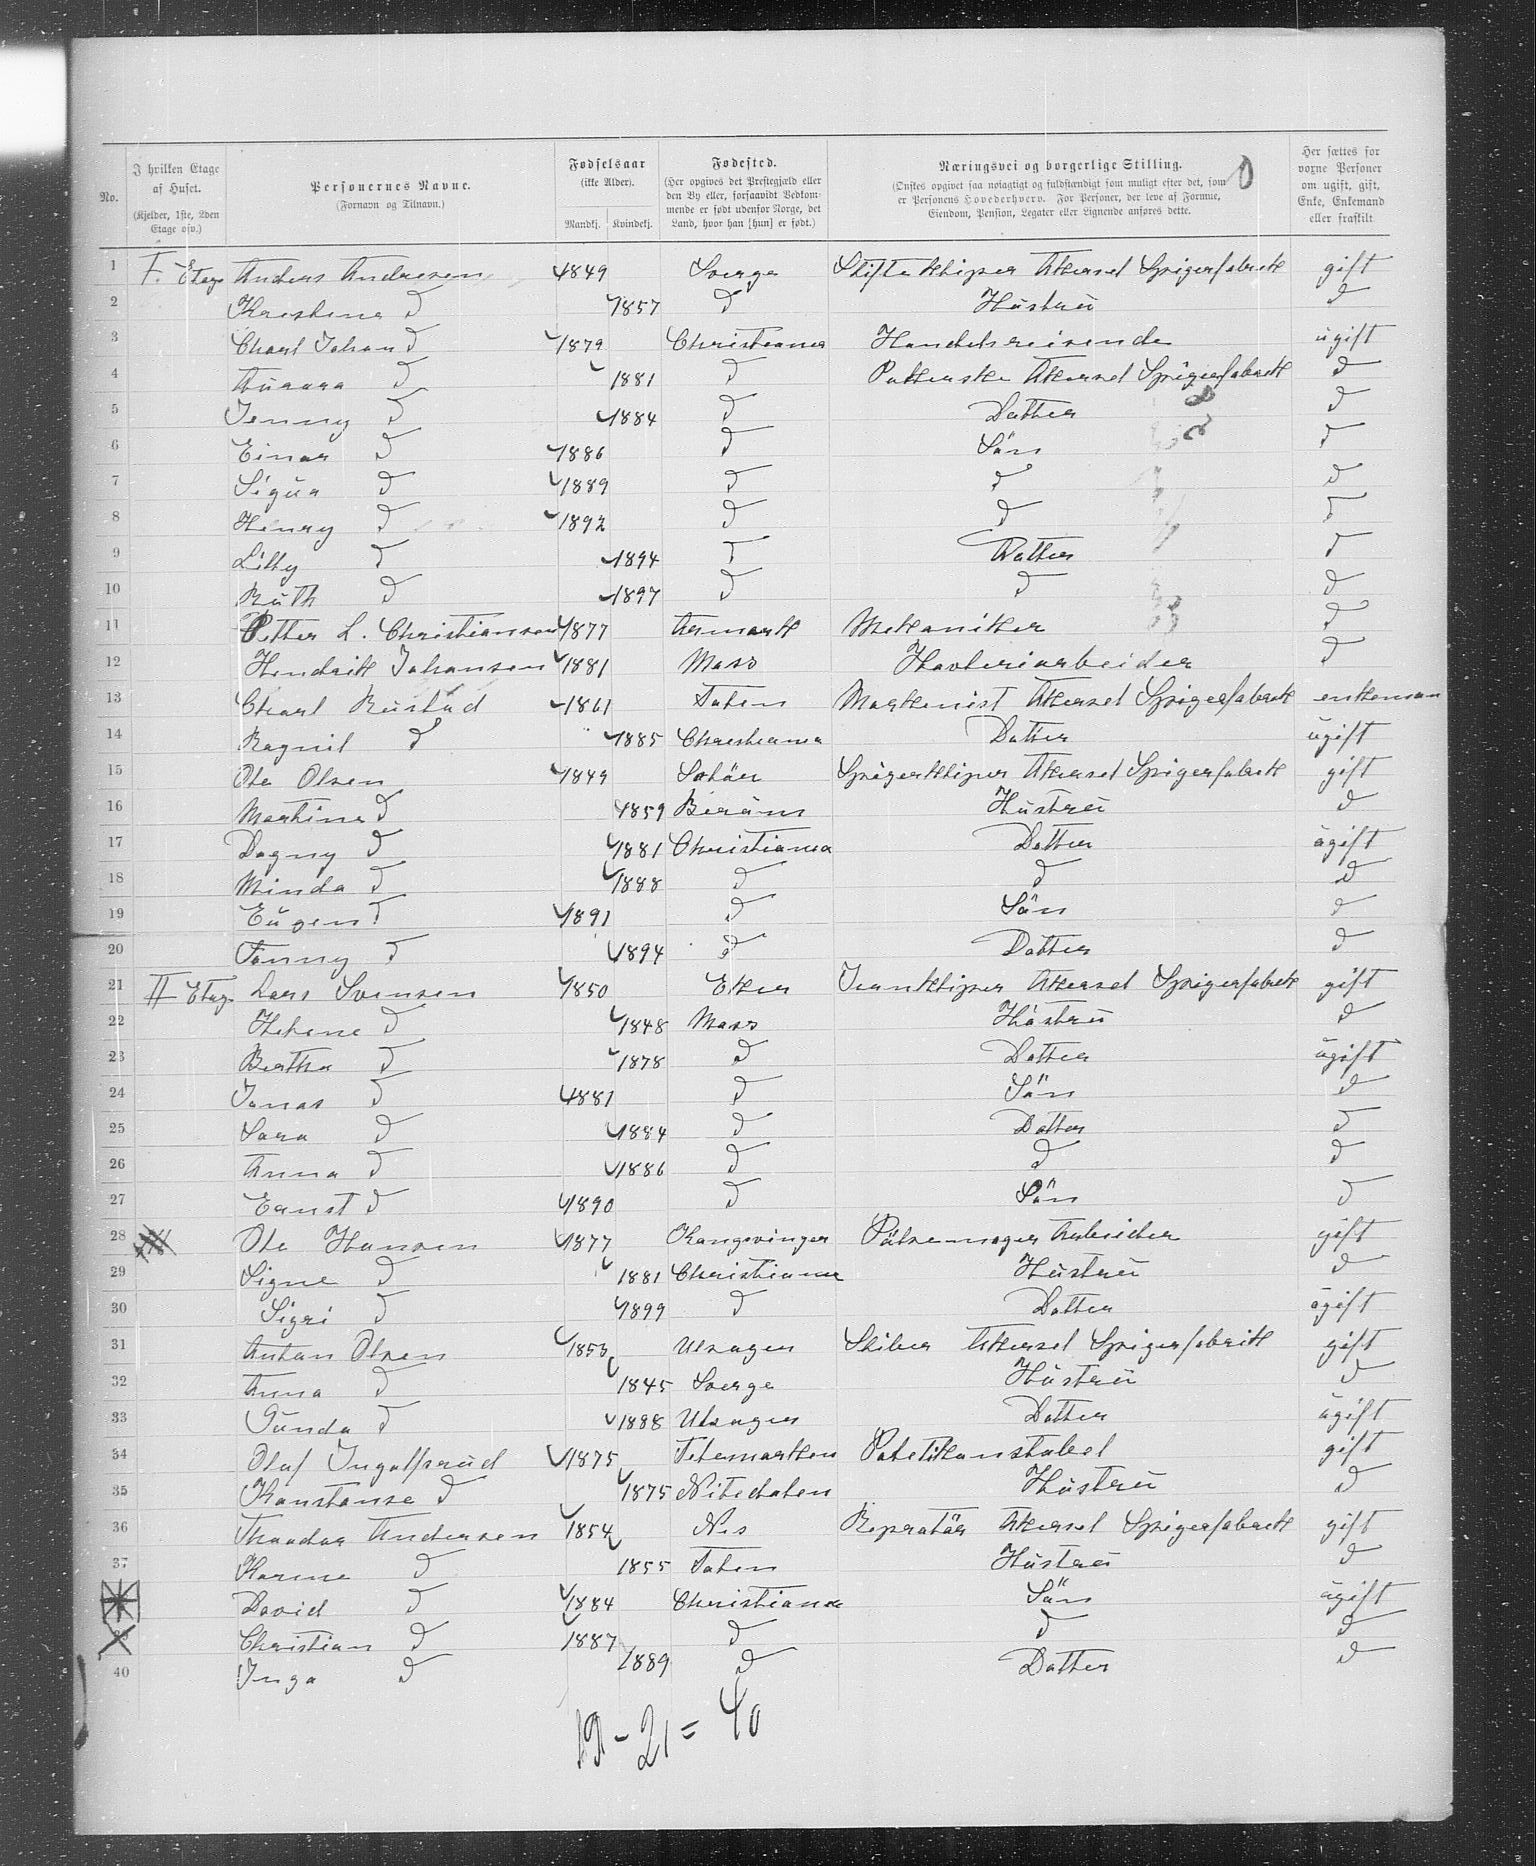 No.
I hvilken Etage af Huset.
(Kjelder, 1ste, 2den Etage osv.)
Personernes Navne.
(Fornavn og Tilnavn.)
Fødselsaar
(ikke Alder).
Mandkj. Kvindekj.
Fødested.
(Her opgives det Prestegjæld eller den By eller, forsaavidt Vedkommende er født udenfor Norge, det Land, hvor han [hun] er født.)
Næringsvei og borgerlige Stilling.
(Ønskes opgivet saa nøiagtigt og fuldstændigt som muligt efter det, som er Personens Hovederhverv. For Personer, der leve af Formue, Eiendom, Pension, Legater eller Lignende anføres dette.
Her sættes for voxne Personer om ugift, gift, Enke, Enkemand eller fraskilt
0
1 I. Etage Anders Andresen 1849 Sverge Stifteklipper Akersel Spigerfabrik gift
2 Kristine d 1857 d Hustru d
3 Charl Johan d 1879 Christiania Handelsreisende ugift
4 Aurora d 1881 d Pakkerske Akersel Spigerfabrik d
5 Jenny d 1884 d Datter d
6 Einar d 1886 d Sön d
7 Sigua d 1889 d d d
8 Henry d 1892 d d d
9 Lilly d 1894 d Datter d
10 Ruth d 1897 d d d
11 Petter L. Christiansen 1877 Aremark Mekaniker d
12 Hendrik Johansen 1881 Moss Høvleriarbeider d
13 Charl Rustad 1861 Toten Maskenist Akersel Spigerfabrik enkeman
14 Ragnil d 1885 Christiania Datter ugift
15 Ole Olsen 1849 Solöer Spigerklipper Akersel Spigerfabrik gift
16 Martine d 1859 Bæröm Hustru d
17 Dagny d 1881 Christiania Datter ugift
18 Minda d 1888 d d d
19 Eugen d 1891 d Sön d
20 Fanny d 1894 d Datter d
21 II Etag. Lars Svensen 1850 Eker Jernklipper Akersel Spigerfabrik gift
22 Helene d 1848 Moss Hustru d
23 Bertha d 1878 d Datter ugift
24 Jonas d 1881 d Sön d
25 Sara d 1884 d Datter d
26 Anna d 1886 d d d
27 Ernst d 1890 d Sön d
28 Ole Hansen 1877 Kongsvinger Pölsemager Arbeider gift
29 Signe d 1881 Christiania Hustru d
30 Sigri d 1899 d Datter ugift
31 Anton Olsen 1853 Ulsager Sliber Akersel Spigerfabrik gift
32 Anna d 1845 Sverge Hustru d
33 Gunda d 1888 Ulsager Datter ugift
34 Olaf Ingolfsrud 1875 Telemarken Politikonstabel gift
35 Konstanse d 1875 Nitedalen Hustru d
36 Theodor Andersen 1854 Nes Repratör Akersel Spigerfabrik gift
37 Karine d 1855 Toten Hustru d
David d 1884 Christiania Sön ugift
39 Christian d 1887 d d d
40 Inga d 1889 d Datter d
19 - 21 = 40